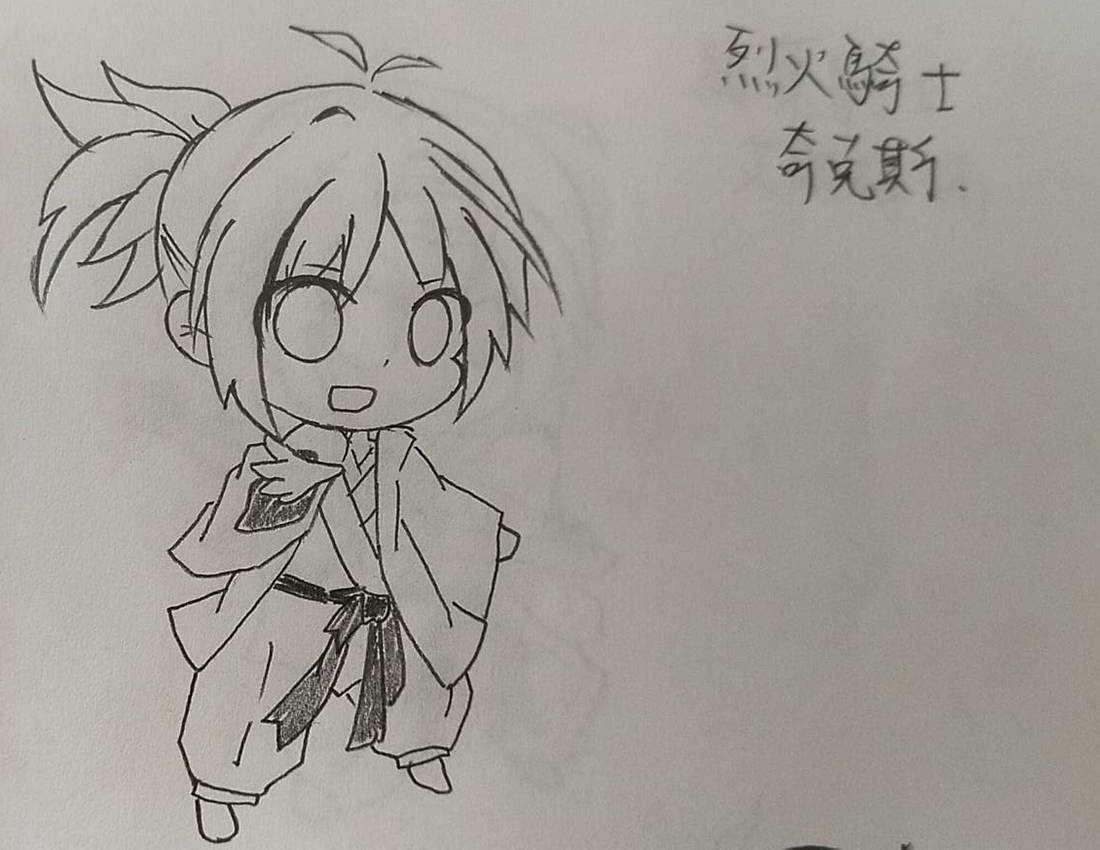 烈火騎士
奇克斯.